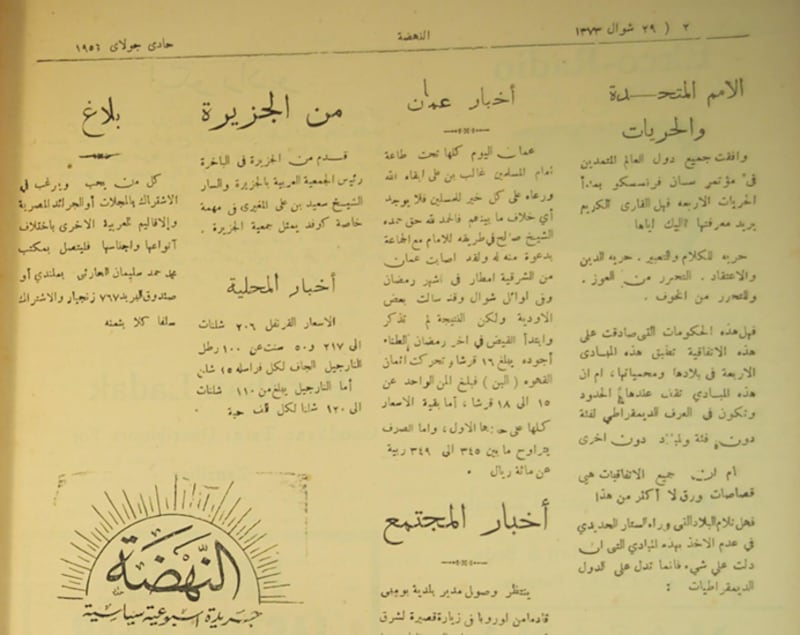 ٢ ( ٢٩ شوال ١٣٧٣
النهضة
حادى جولاى ١٩٥٤
الامم المتحدة
والحريات
وافقت جميع دول العالم المتمدين
فى مؤتمر سان فرنسسكو بمبدأ
الحريات الاربعه فهل القارى الكريم
يريد معرفتها ؟ اليك اياها
حريه للكلام والتعبير . حريه الدين
والاعتقاد . التحرر من العوز .
وللتحرر من الخوف .
فهل هذه الحكومات التى صادقت على
هذه الاتفاقية تطبق هذه المبادى
الاربعة فى بلادها ومحمياتها ، ام ان
هذه المبادي تقف عندها الحدود
وتكون فى العرف الديمقراطي لفئة
دون فئة ولبلد دون اخرى
ام ان جميع الاتفاقيات هي
قصاصات ورق لا أكثر من هذا
فهل تلام البلاد التى وراء الستار الحديدي
في عدم الاخذ بهذه المبادي التى ان
دلت علي شيء فانما تدل على الدول
الديمقراطيات :
أخبار عمان
عمان اليوم كلها تحت طاعة
امام المسلمين غالب بن على ابقاه الله
ورعاه على كل خير للمسلمين فلا يوجد
أي خلاف ما بينهم فالحمد لله حق حمده
الشيخ صالح فى طريقه للامام مع الجماعة
بدعوة منه له ولقد اصابت عمان
من الشرقية امطار فى اشهر رمضان
وفى اوائل شوال وقد سالت بعض
الاودية ولكن النتيجة لم تذكر
وابتدأ القيض في اخر رمضان
أجوده يبلغ ١٦ قرشا وتحركت اثمان
القهوه ( البن ) فبلغ المن الواحد عن
١٥ الى ١٨ قرشا ، أما بقية الاسعار
كلها على حدها الاول ، واما الصرف
يتراوح ما بين ٣٤٥ الى ٣٤٩ ربية
عن مائة ريال .
أخبار المجتمع
ينتظر وصول مدير بلدية بومبى
قادما من اوروبا فى زيارة قصيرة لشرق
من الجزيرة
قدم من الجزيرة فى الباخرة
رئيس الجمعية العربية بالجزيرة والسار
الشيخ سعيد بن على المغيرى فى مهمة
خاصة كوفد يمثل جمعية الجزيرة .
أخبار المحلية
الاسعار القرنفل ٢٠٦ شلنات
الى ٢١٧ و ٥٠ سنت عن ١٠٠ رطل
النارجيل الجاف لكل فراسله ١٥ شلن
أما النارجيل يبلغ من ١١٠ شلنات
الى ١٢٠ شلنا لكل الف حبة
بلاغ
كل من يحب ويرغب في
الاشتراك بالمجلات أو الجرائد المصرية
والاقاليم العربية الاخرى باختلاف
أنواعها واجناسها فليتصل بمكتب
محمد حمد سليمان الحارثى بملندي أو
صندوق البريد ٧٦٧ زنجبار والاشتراك
سلفا كلا بثمنه
النهضة
جريدة اسبوعية سياسية